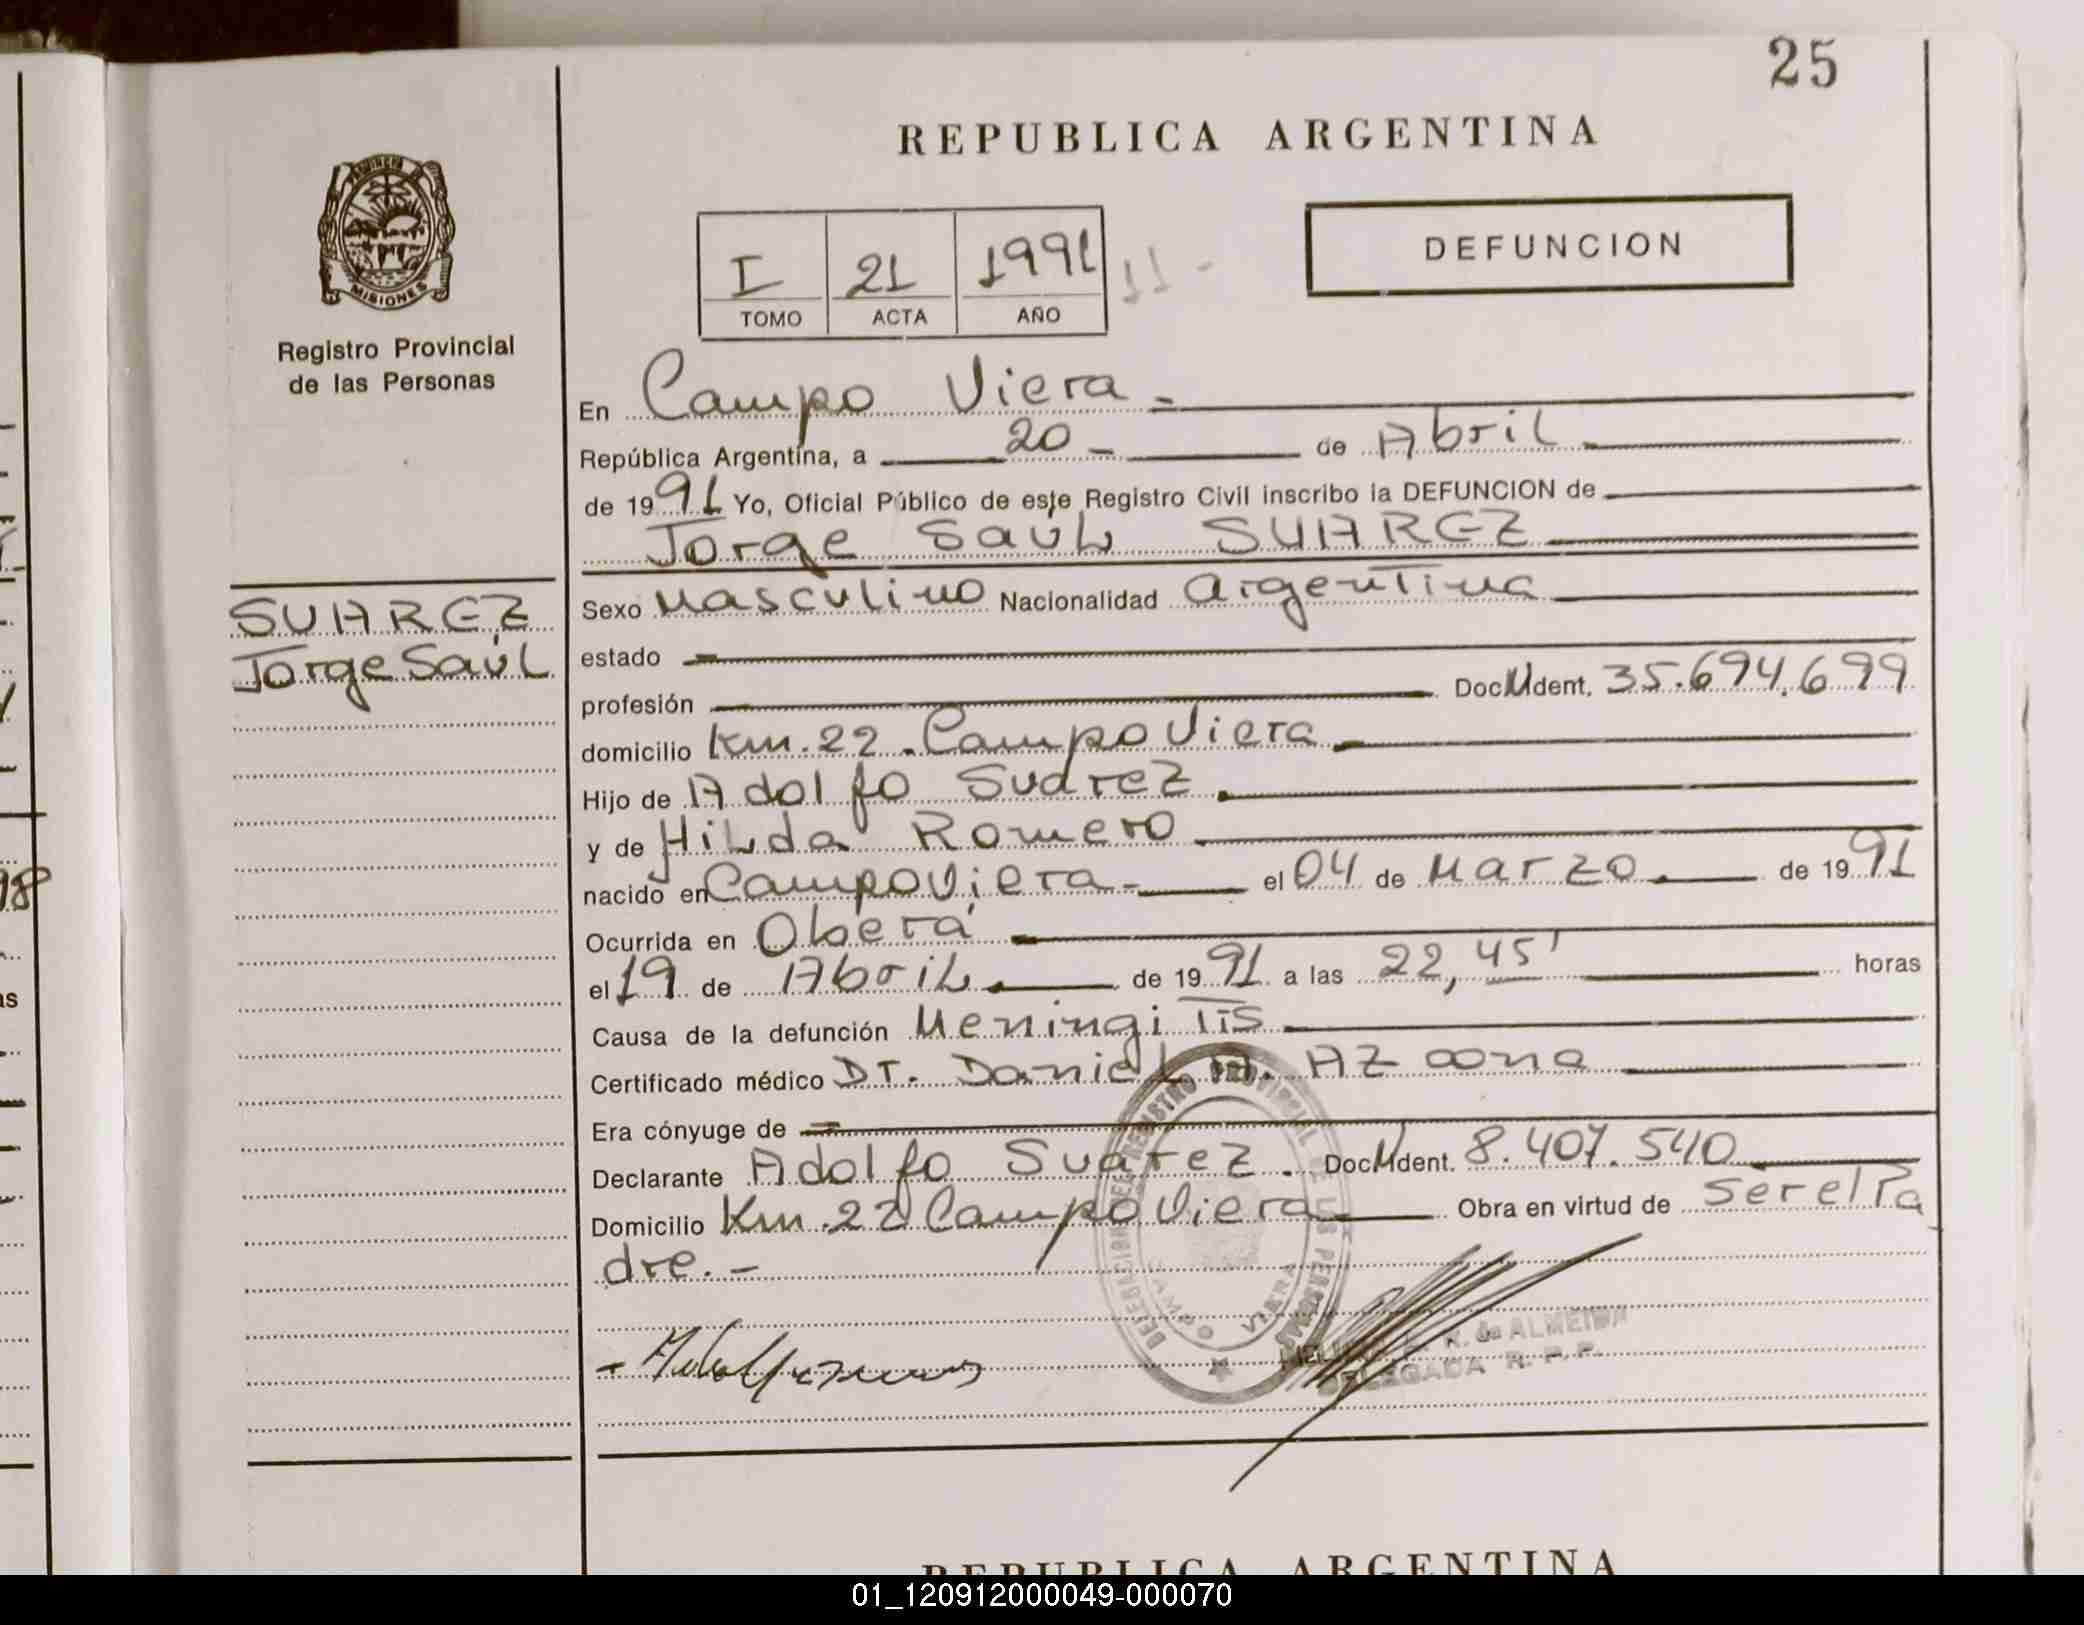 25
REPUBLICA ARGENTINA
MISIONES
Registro Provincial
de las Personas
I 21 1991 11-
TOMO ACTA AÑO
DEFUNCION
En Campo Viera.-
República Argentina, a 20- de Abril
de 1991 Yo, Oficial Público de este Registro Civil inscribo la DEFUNCION de
Jorge Saúl SUAREZ
SUAREZ
Jorge Saúl
Sexo Masculino Nacionalidad Argentina
estado -
profesión Doc. Ident. 35.694.699
domicilio Km.22.Campo Viera
Hijo de Adolfo Suárez.
y de Hilda Romero
nacido en Campo Viera- el 04 de Marzo. de 1991
Ocurrida en Oberá
el 19 de Abril. de 1991 a las 22,45' horas
Causa de la defunción Meningitis
Certificado médico Dr. Daniel A.
Era cónyuge de =
Declarante Adolfo Suárez. Doc. Ident. 8.407.540
Domicilio Km.22 Campo Viera Obra en virtud de Ser el Pa
dre.-
DELEGACION DEL REGISTRO PROVINCIAL DE LAS PERSONAS
CAMPO VIERA
de ALMEIDA
DELEGADA R. P. P.
REPUBLICA ARGENTINA
01_120912000049-000070